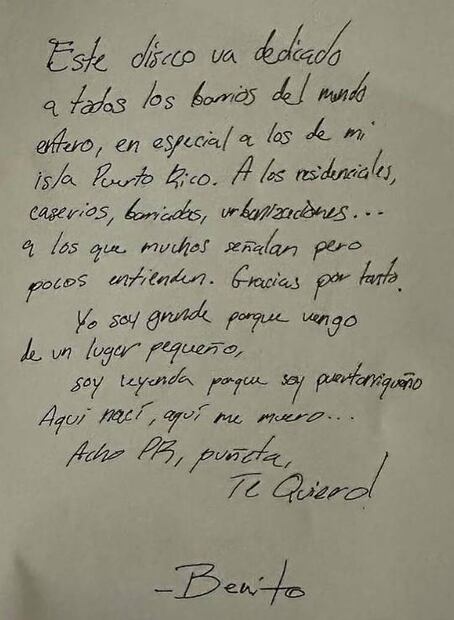 Este disco va dedicado
a todos los barrios del mundo
entero, en especial a los de mi
isla Puerto Rico. A los residenciales,
caserios, barriadas, urbanizaciones...
a los que muchos señalan pero
pocos entienden. Gracias por tanto.
Yo soy grande porque vengo
de un lugar pequeño,
soy leyenda porque soy puertorriqueño
Aquí nací, aquí me muero...
Acho PR, puñeta,
Te Quiero!
-Benito